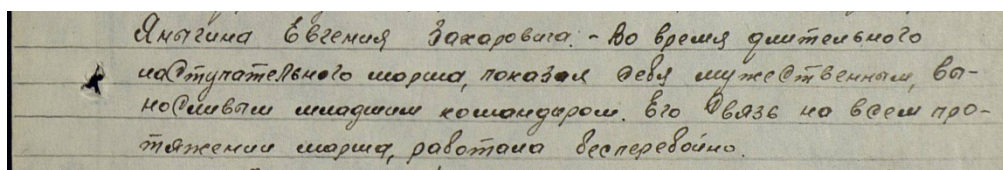 Янычина Евгения Захаровича. - Во время длительного
наступательного марша, показал себя мужественным, вы-
носливым младшим командиром. Его связь на всем про-
тяжении марша, работала бесперебойно.